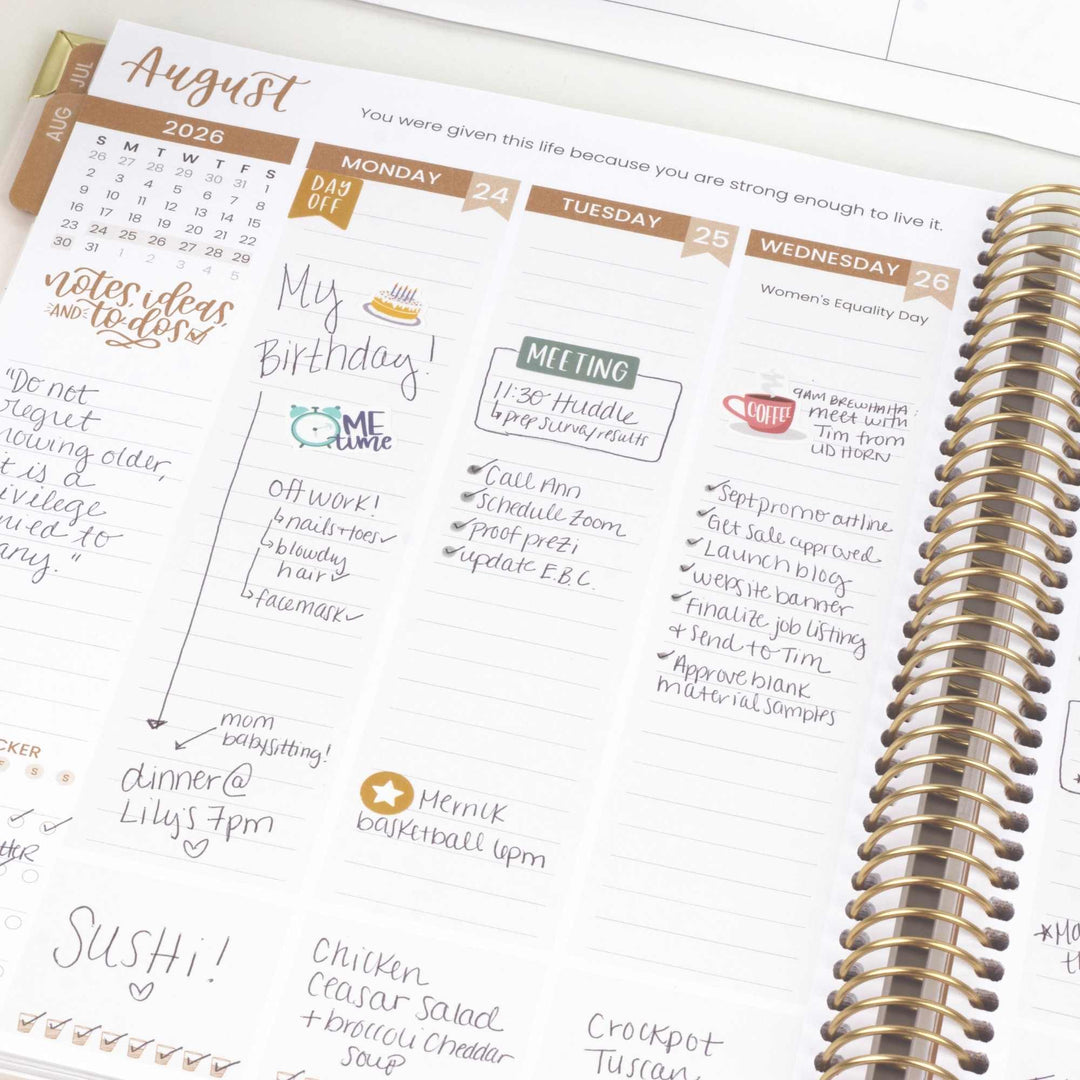 JUL
AUG
August
You were given this life because you are strong enough to live it.
2026
S M T W T F S
26 27 28 29 30 31 1
2 3 4 5 6 7 8
9 10 11 12 13 14 15
16 17 18 19 20 21 22
23 24 25 26 27 28 29
30 31 1 2 3 4 5
notes, ideas,
AND to-dos
"Do not
regret
growing older,
it is a
privilege
to
any."
CKER
F S S
MONDAY 24
DAY
OFF
My
Birthday!
ME
time
Off work!
nails + toes
blowdry
hair
facemask
mom
babysitting!
dinner @
Lily's 7pm
SUSHi!
TUESDAY 25
MEETING
11:30 Huddle
prep survey results
Call Ann
Schedule Zoom
Proof prezi
update E.B.C.
Merrick
basketball 6pm
Chicken
Ceasar Salad
+ broccoli Cheddar
soup
WEDNESDAY 26
Women's Equality Day
COFFEE
9AM BREWHAHA:
meet with
Tim from
UD HORN
Sept promo outline
Get sale approved
Launch blog
website banner
Finalize job listing
+ send to Tim
Approve blank
material samples
Crockpot
Tuscan